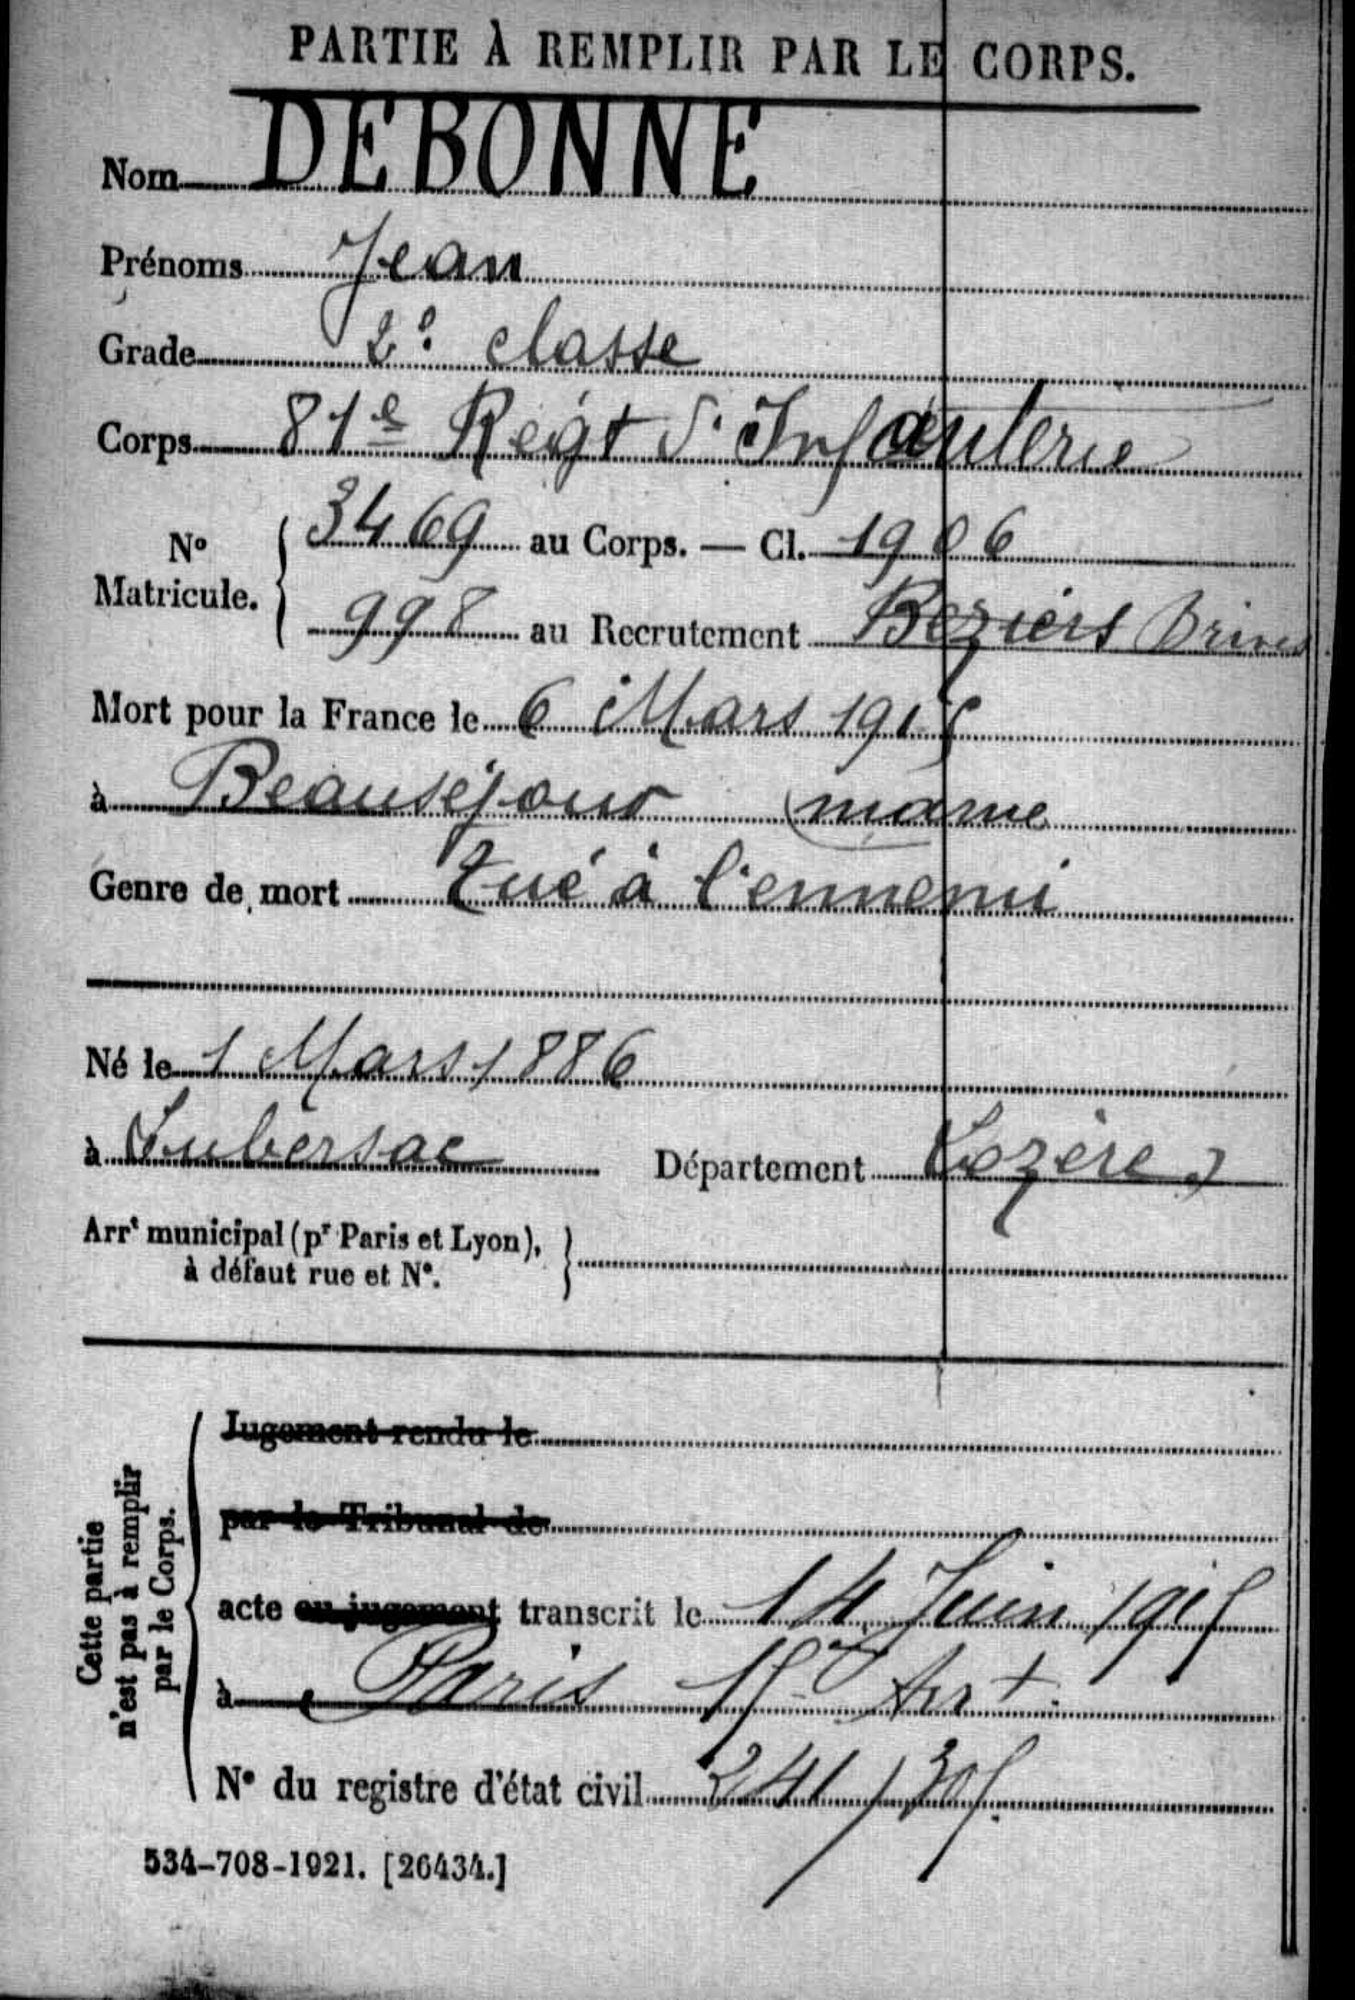 PARTIE À REMPLIR PAR LE CORPS.
Nom DEBONNE
Prénoms Jean
Grade 2e classe
Corps 81e Regt d'Infanterie
No Matricule. 3469 au Corps. — Cl. 1906
998 au Recrutement Beziérs Brives
Mort pour la France le 6 Mars 1915
à Beauséjour (marne
Genre de mort tué à l'ennemi
Né le 1 Mars 1886
à Lubersac Département Lozère
Arrt municipal (pr Paris et Lyon),
à défaut rue et N°.
Cette partie
n'est pas à remplir
par le Corps.
Jugement rendu le
par le Tribunal de
acte ou jugement transcrit le 14 Juin 1915
à Paris 15e Arrt.
N° du registre d'état civil 241/305.
534-708-1921. [26434.]